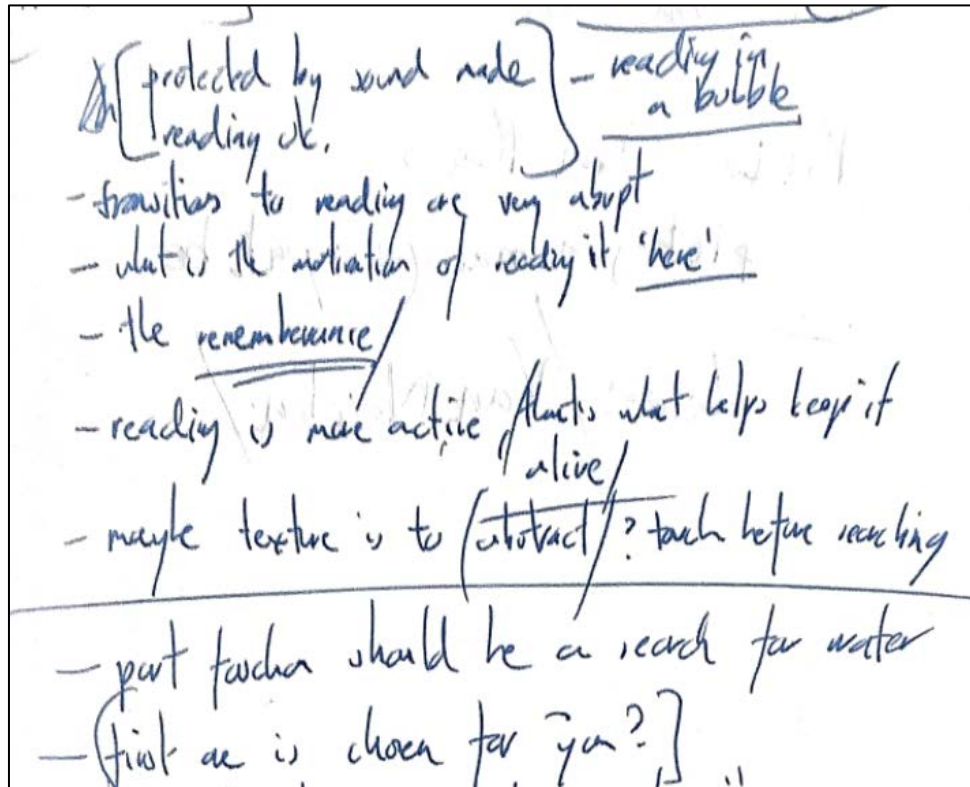 [protected by sound made
reading ok.] - reading in
a bubble
- transitions to reading are very abrupt
- what is the motivation of reading it 'here'
- the rememberance
- reading is more active, that's what helps keep it
alive
- maybe texture is to (abstract)? touch before reaching
- part should be a search for water
- (first one is chosen for you?]